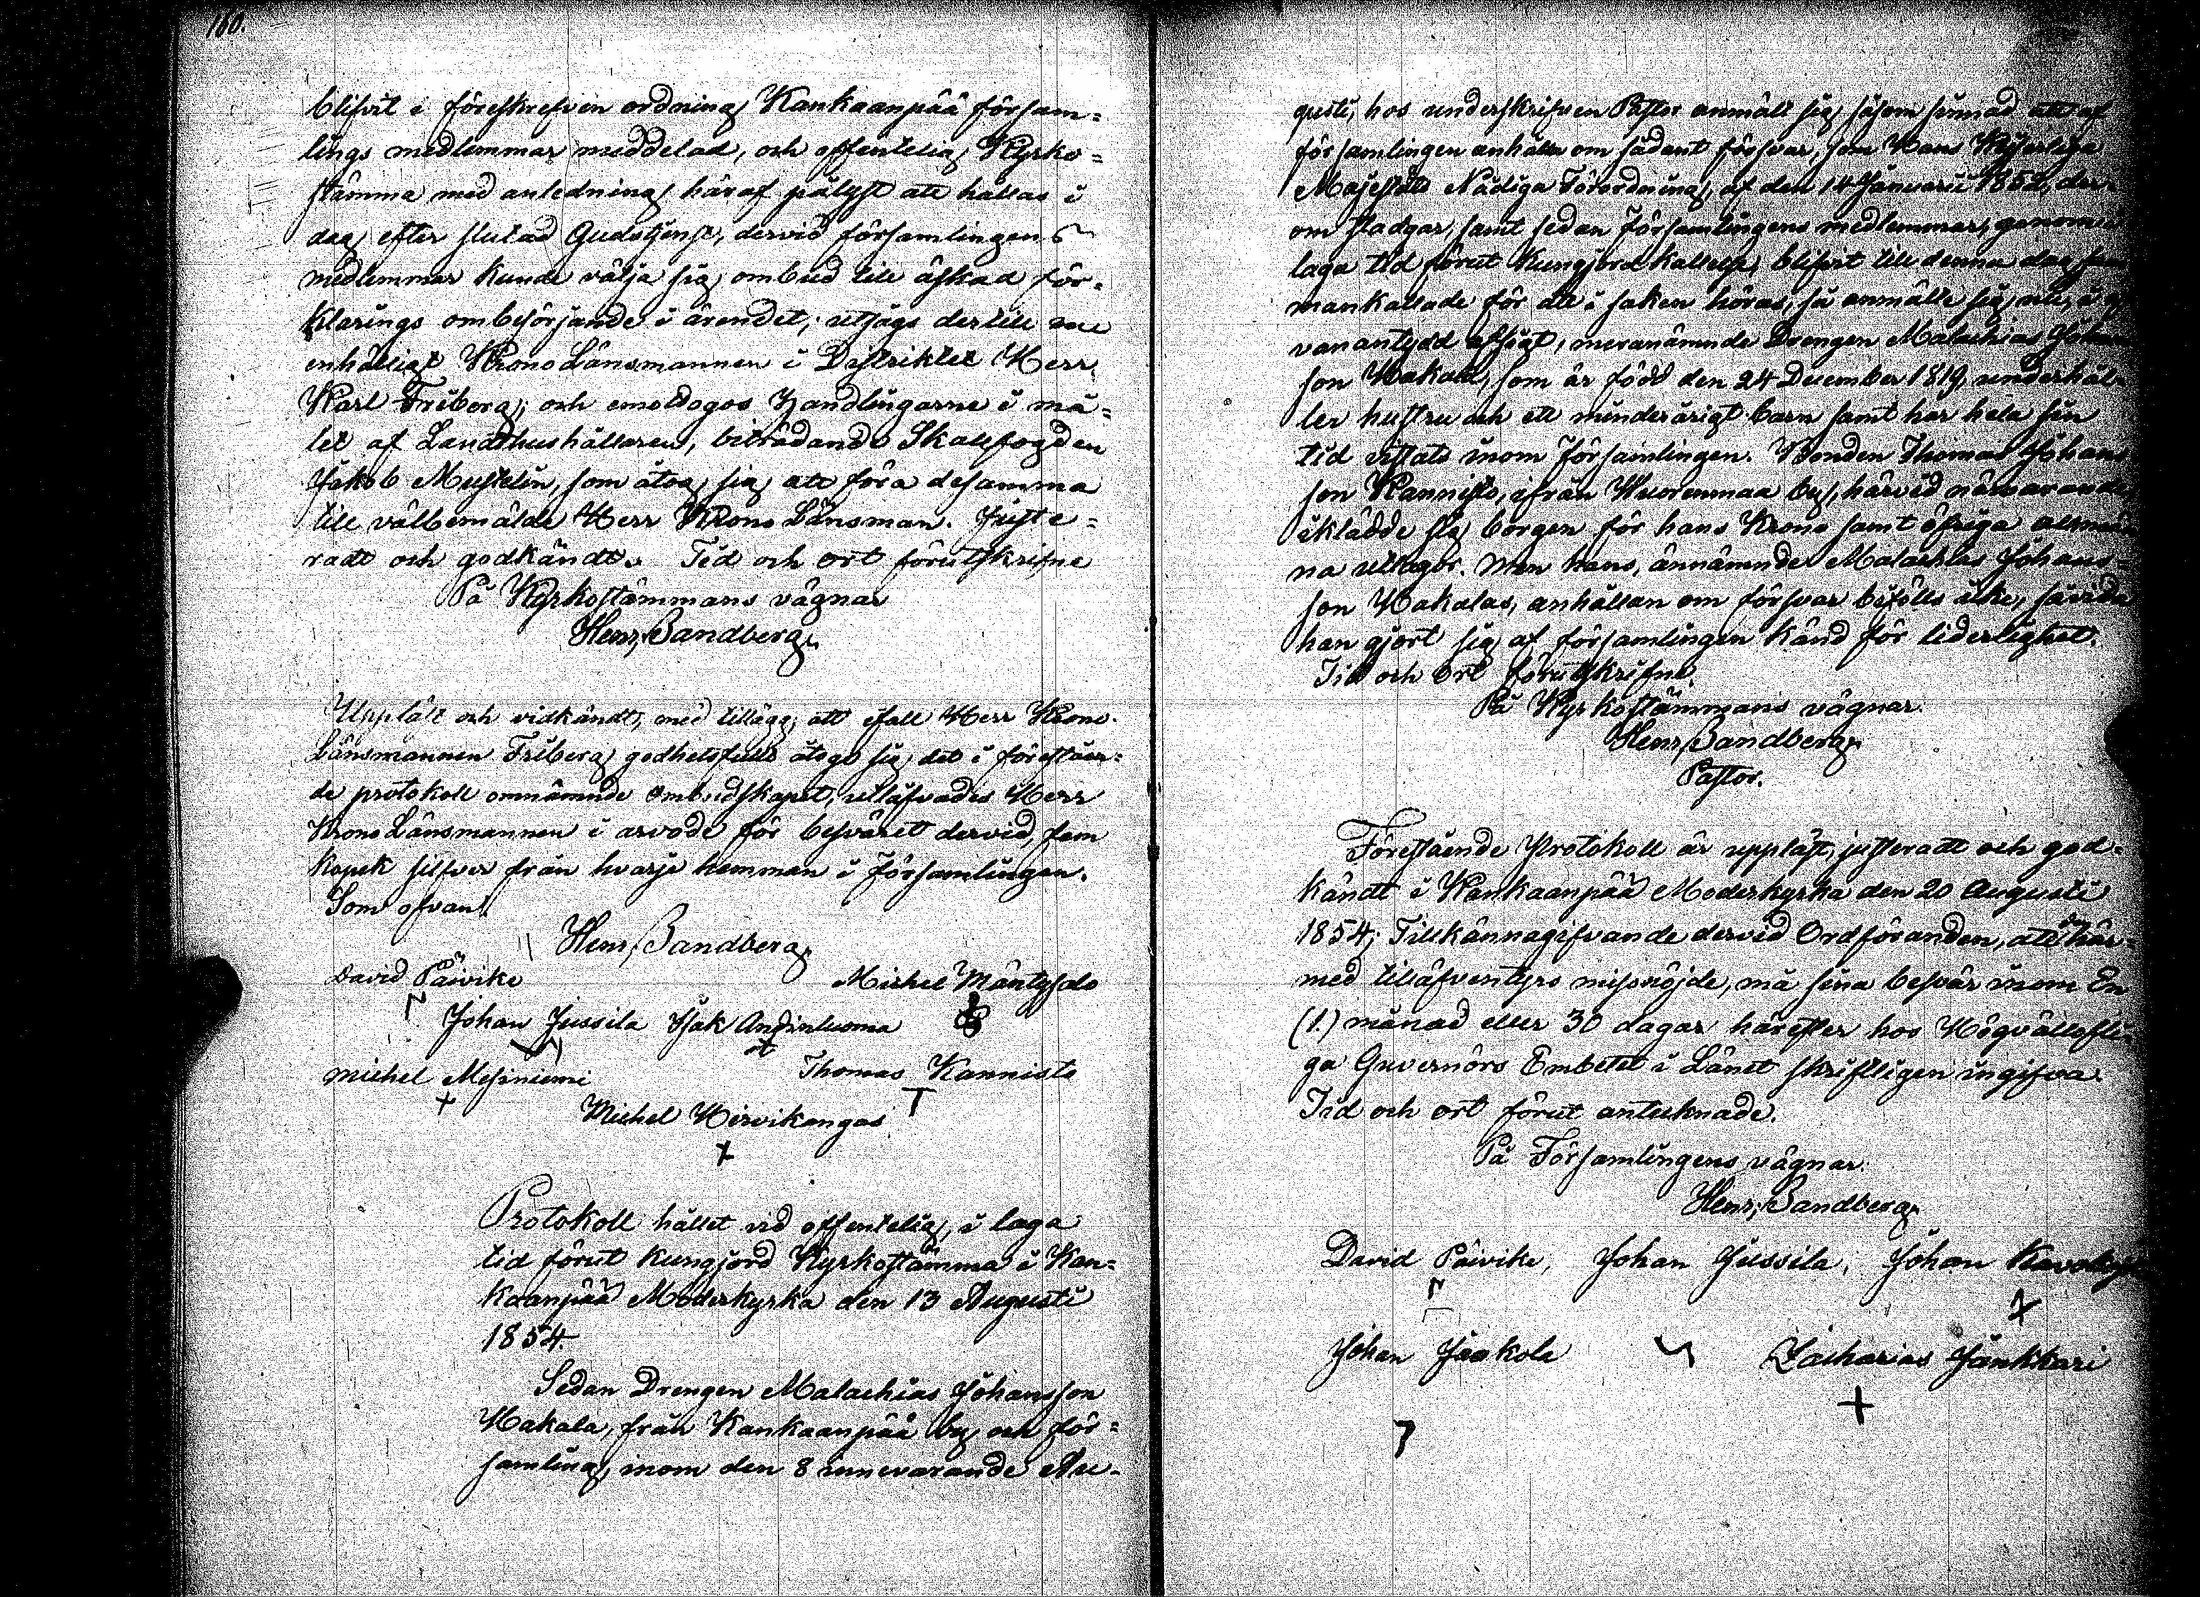 160.
blifvit i föreskrefven ordning Kankaanpää försam=
lings medlemmar meddelad, och offentelig Kyrko=
stämma med anledning häraf pålyst att hållas i
dag efter slutad Gudstjenst, dervid församlingens
medlemmar kunde välja sig ombud till äskad för=
klarings ombesörjande i ärendet; utsågs dertill
enhälligt Krono Länsmannen i Distriktet Herr
Karl Friberg; och emottogos handlingarne i må=
let af Landthushållaren, biträdande Skallfogden
Jakob Mustelin, som åtog sig att föra desamma
till välbemälde Herr Krono Länsman. Juste=
radt och godkändt. Tid och ort förutskrifne
På Kyrkostämmans vägnar
Henr. Sandberg.
Uppläst och vidkändt, med tillägg, att ifall Herr Krono
Länsmannen Friberg godhetsfullt åtoge sig det i föreståen=
de protokoll omnämnde ombudskapet, utlåfvades Herr
Krono Länsmannen i arvode för besväret dervid, fem
kopek silfver från hvarje hemman i församlingen.
Som ofvan.
Henr. Sandberg.
David Päivike Michel Mäntysalo
Johan Jussila Isak Antinluoma
Michel Mesiniemi Thomas Kannisto
Michel Hirvikangas
Protokoll hållet vid offentelig, i laga
tid förut kungjord Kyrkostämma i Kan=
kaanpää Moderkyrka den 13 Augusti
1854.
Sedan Drengen Malachias Johansson
Hakala, från Kankaanpää by och för=
samling, inom den 8 innevarande Au=
gusti, hos underskrifven Pastor anmält sig såsom sinnad att af
församlingen anhålla om sådant försvar, som Hans Kejserliga
Majestäts Nådiga Förordning, af den 14 Januarii 1852, der=
om stadgar, samt sedan församlingens medlemmar, genom i
laga tid förut kungjord kallelse, blifvit till denna dag sam
mankallade för att i saken höras, så anmälte sig nu, i
vanantydd afsigt, meranämnde Drengen Malachias Johans
son Hakala, som är född den 24 December 1819, underhål=
ler hustru och ett minderårigt barn samt har hela sin
tid vistats inom församlingen. Bonden Thomas Johans
son Kannisto, ifrån Wuorenmaa by, härvid närvarande
iklädde sig borgen för hans Krono samt öfriga allmän
na utlagor. Men hans, ännämnde Malachias Johans=
son Hakalas, anhållan om försvar bifölls icke, såvida
han gjort sig af församlingen känd för liderlighet.
Tid och Ort förutskrifne.
På Kyrkostämmans vägnar.
Henr. Sandberg.
Pastor.
Förestående Protokoll är uppläst, justeradt och god=
kändt i Kankaanpää Moderkyrka den 20 Augusti
1854; Tillkännagifvande dervid Ordföranden, att här=
med tilläfventyrs missnöjde, må sina besvär inom En
(1.) månad eller 30 dagar härefter hos Högvällofli
ga Guvernörs Embetet i Länet skriftligen ingifva.
Tid och ort förut antecknade.
På Församlingens vägnar.
Henr. Sandberg.
David Päivike, Johan Jussila, Johan
Johan Jaakola Zacharias Jankkari